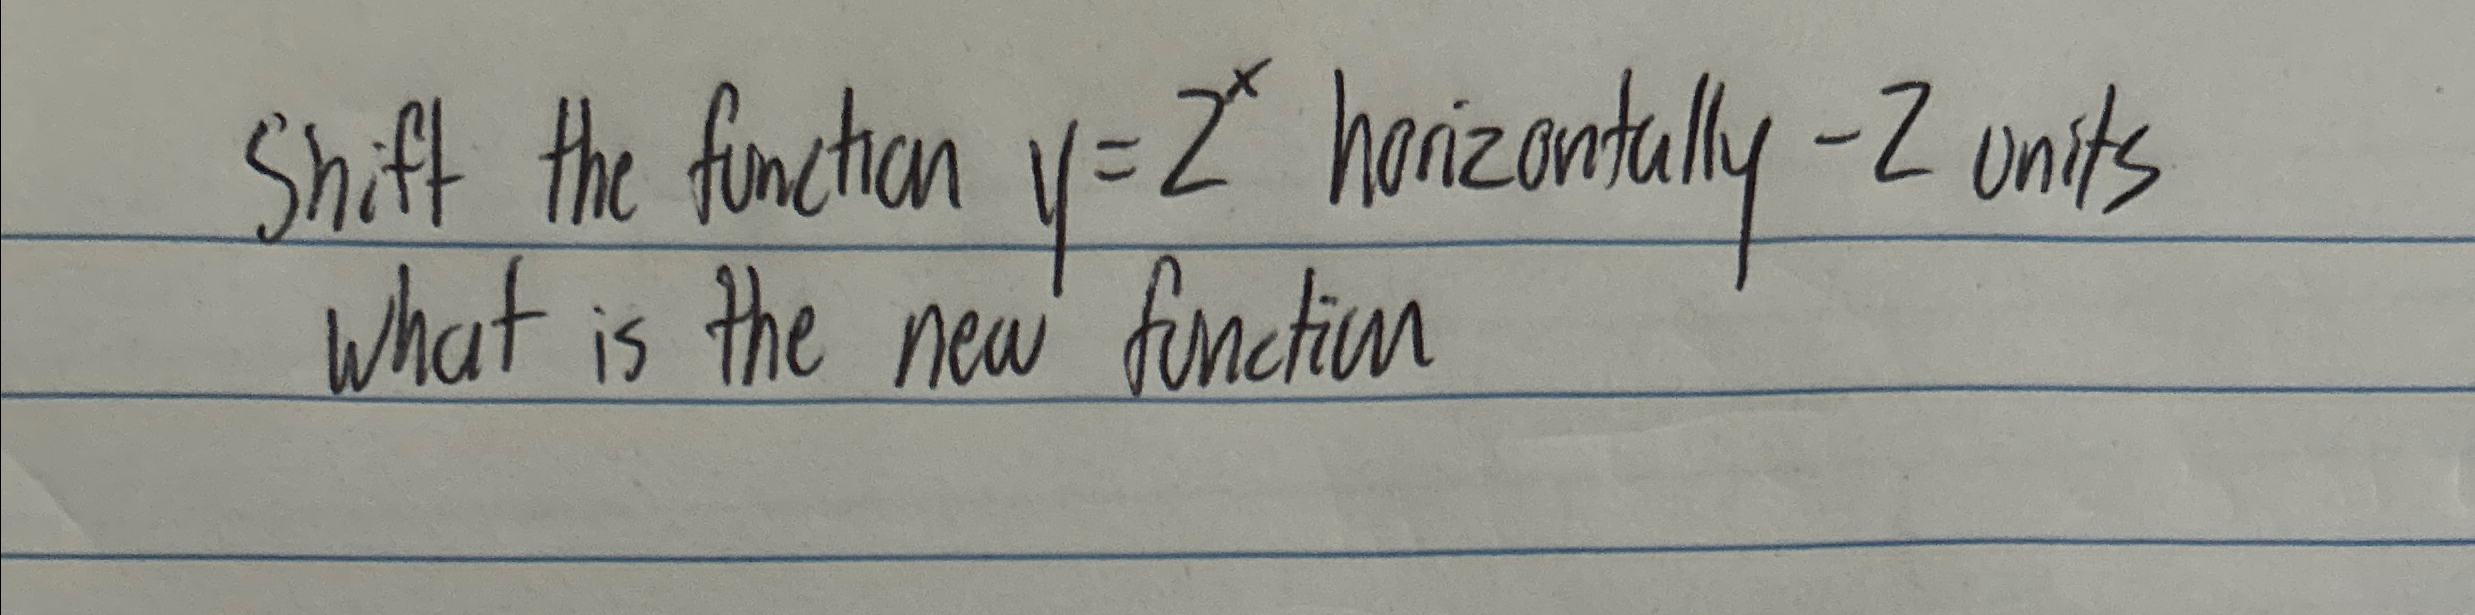 Shift the function y = 2^x horizontally -2 units
What is the new function